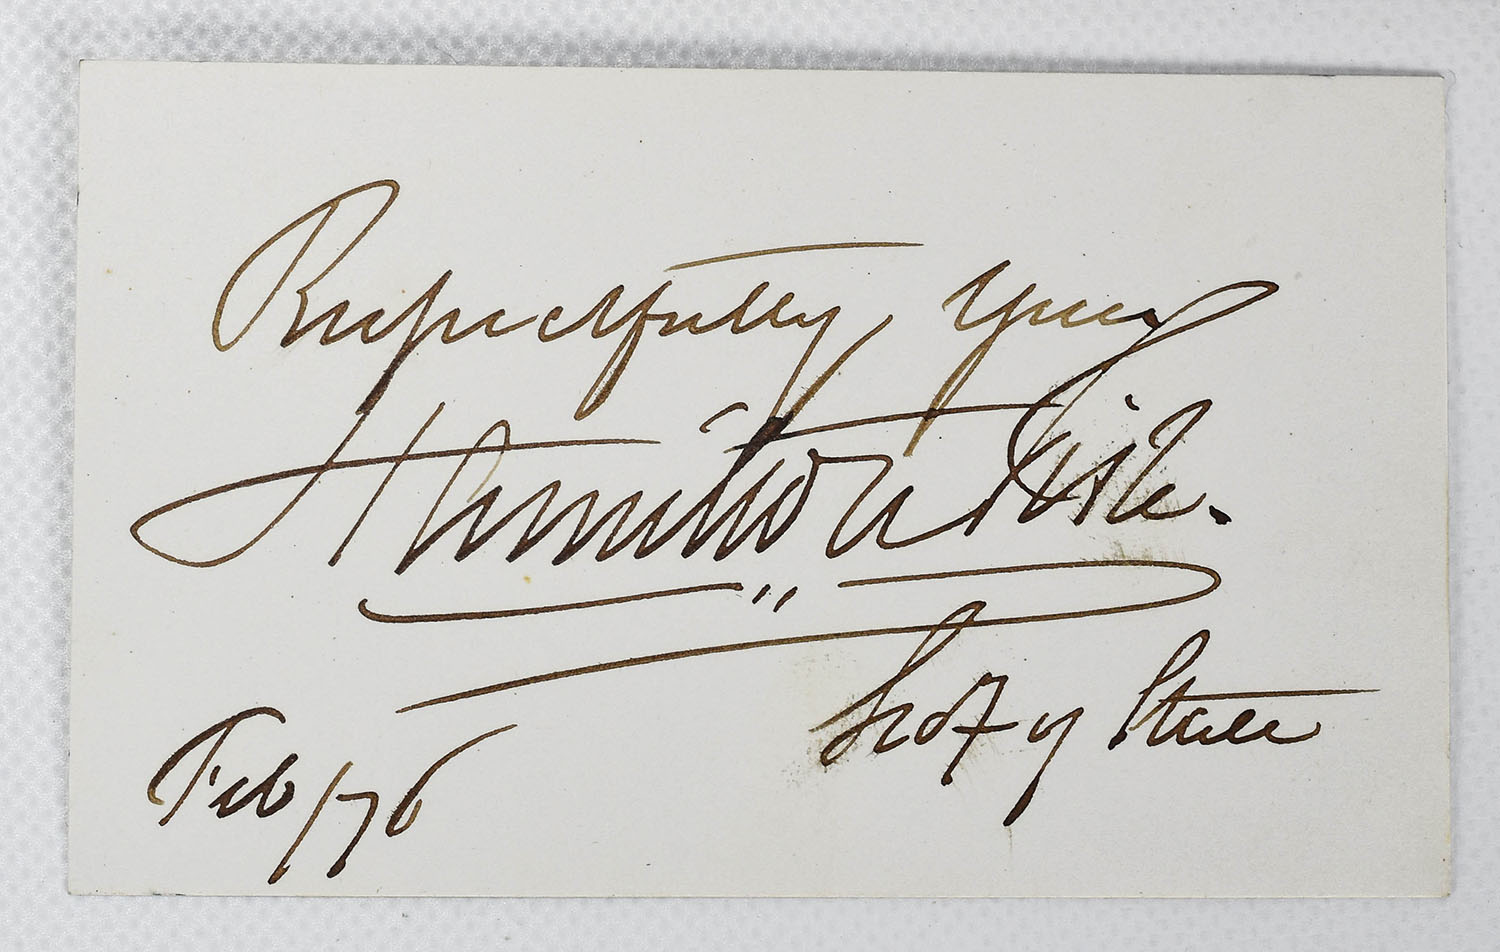 Respectfully Yours
Hamilton Fish.
Secty of State
Feb /76